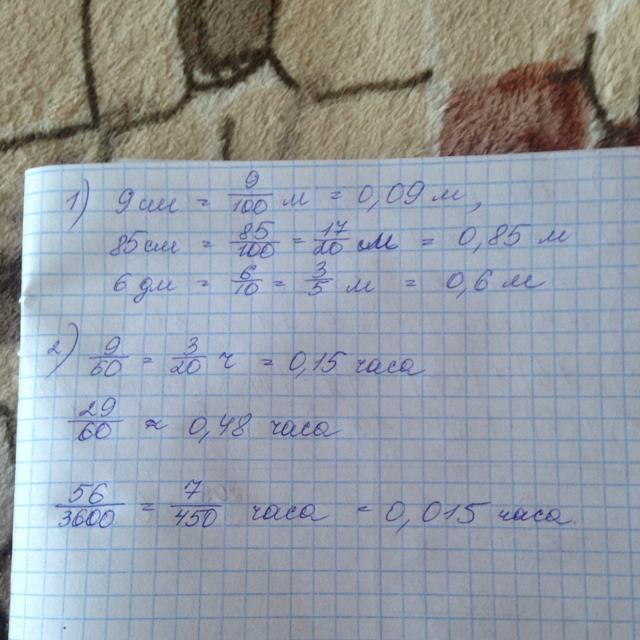 1) 9 см = 9/100 м = 0,09 м,
85 см = 85/100 = 17/20 см = 0,85 м
6 дм = 6/10 = 3/5 м = 0,6 м
2) 9/60 = 3/20 ч = 0,15 часа
29/60 ≈ 0,48 часа
56/3600 = 7/450 часа = 0,015 часа.